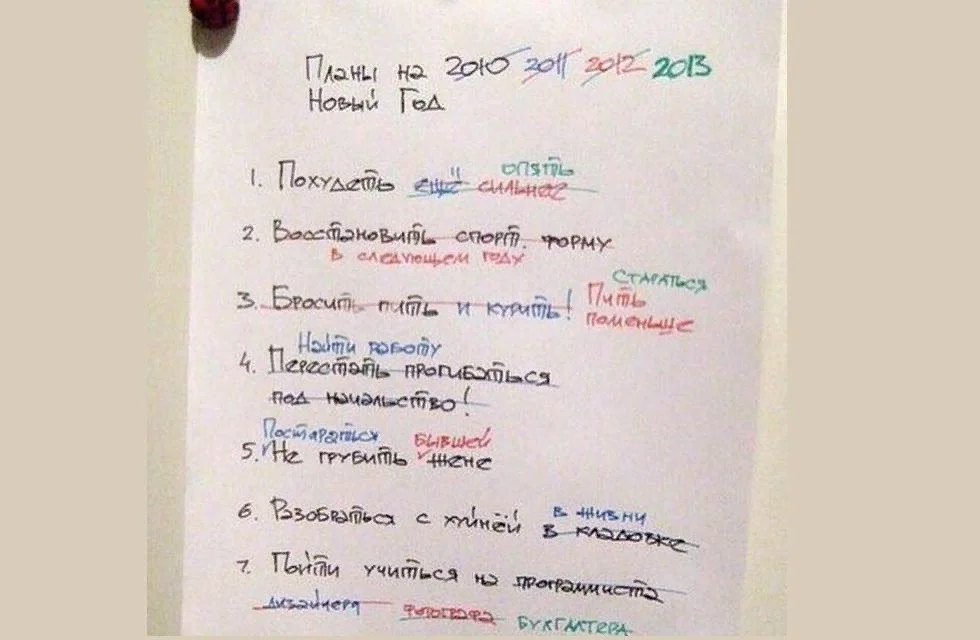 Планы на 2010 2011 2012 2013
Новый Год
опять
1. Похудеть ещё сильнее
2. Восстановить спорт. форму
в следующем году
стараться
3. Бросить пить и курить! Пить
поменьше
Найти работу
4. Перестать прогибаться
под начальство!
Постараться бывшей
5. Не грубить жене
в жизни
6. Разобраться с хуйнёй в кладовке
7. Пойти учиться на программиста
дизайнера фотографа бухгалтера